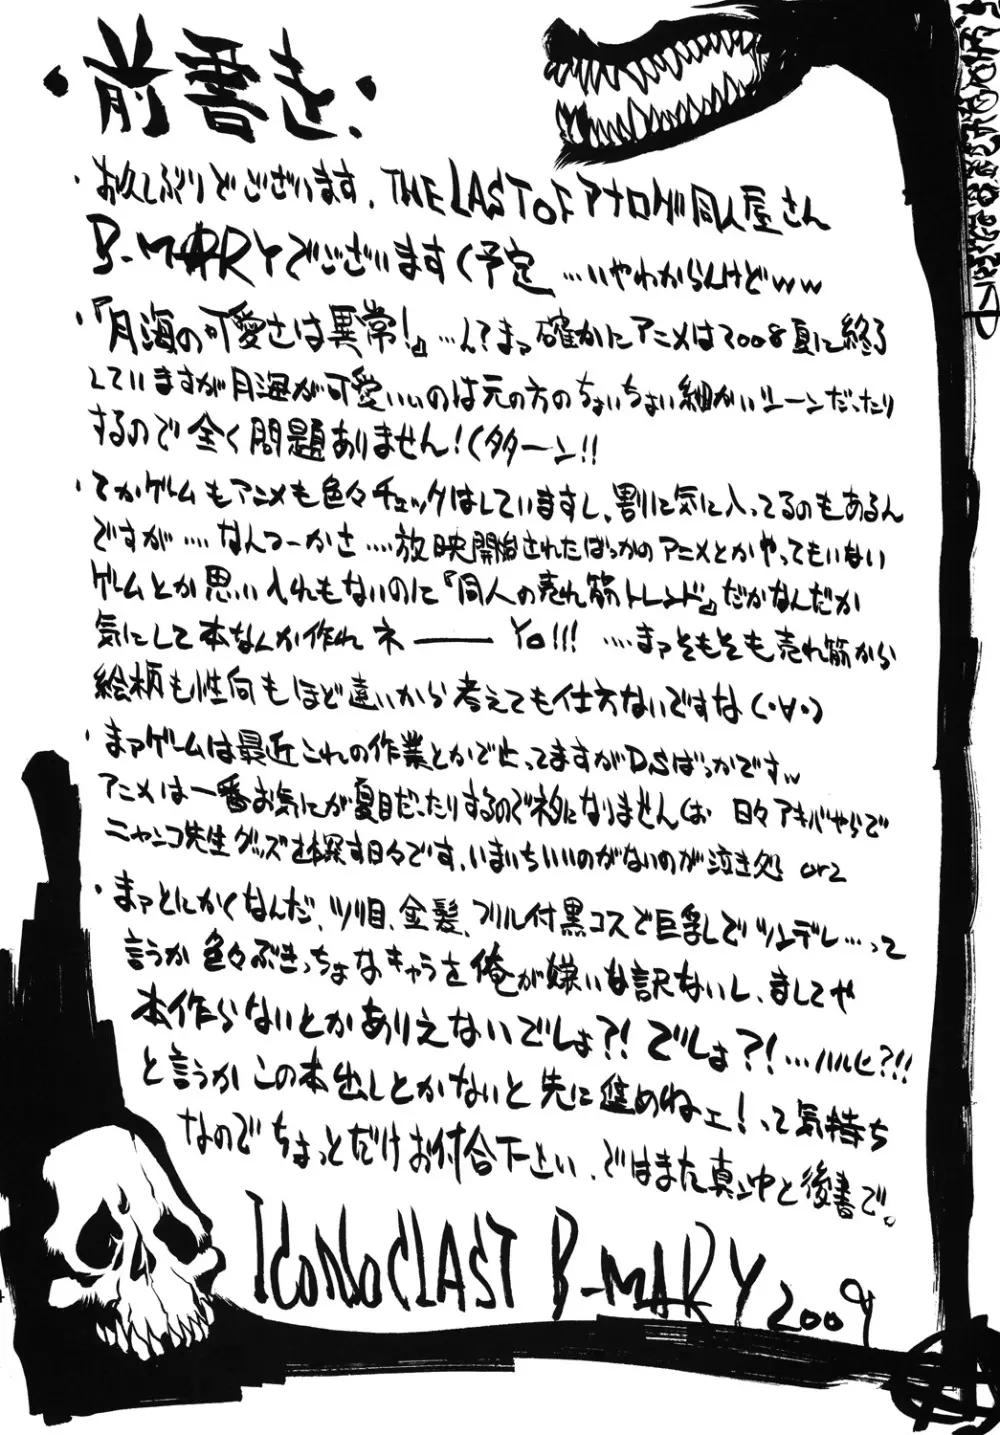 ・前書き・
・お久しぶりでございます、THE LAST OF アナログ同人屋さん
B-MARYでございます(予定 …いやわからんけどww
・『月海の可愛さは異常!』…ん?まァ確かにアニメは2008夏に終了
していますが月海が可愛いぃのは元の方のちょいちょい細かいシーンだったり
するので全く問題ありません!(タターン!!
・てかゲームもアニメも色々チェックはしていますし、割に気に入ってるのもあるん
ですが‥‥なんつーかさ‥‥放映開始されたばっかのアニメとかやってもいない
ゲームとか思い入れもないのに『同人の売れ筋トレンド』だかなんだか
気にして本なんか作れネ――Yo!!! ‥‥まァそもそも売れ筋から
絵柄も性向もほど遠いから考えても仕方ないですな(・∀・)
・まァゲームは最近これの作業とかで止ってますがDSばっかですw
アニメは一番お気にが夏目だったりするのでネタになりませんくお 日々アキバやらで
ニャンコ先生グッズを探す日々です、いまいちいいのがないのが泣き処 orz
・まァとにかくなんだ、ツリ目、金髪、フリル付黒コスで巨乳でツンデレ…って
言うか色々ぶきっちょなキャラを俺が嫌いな訳ないし、ましてや
本作らないとかありえないでしょ?! でしょ?!…ハルヒ?!!
と言うかこの本出しとかないと先に進めねェ!って気持ち
なのでちょっとだけお付合下さい、ではまた真ン中と後書で。
IcoNoCLAST B-MARY 2009